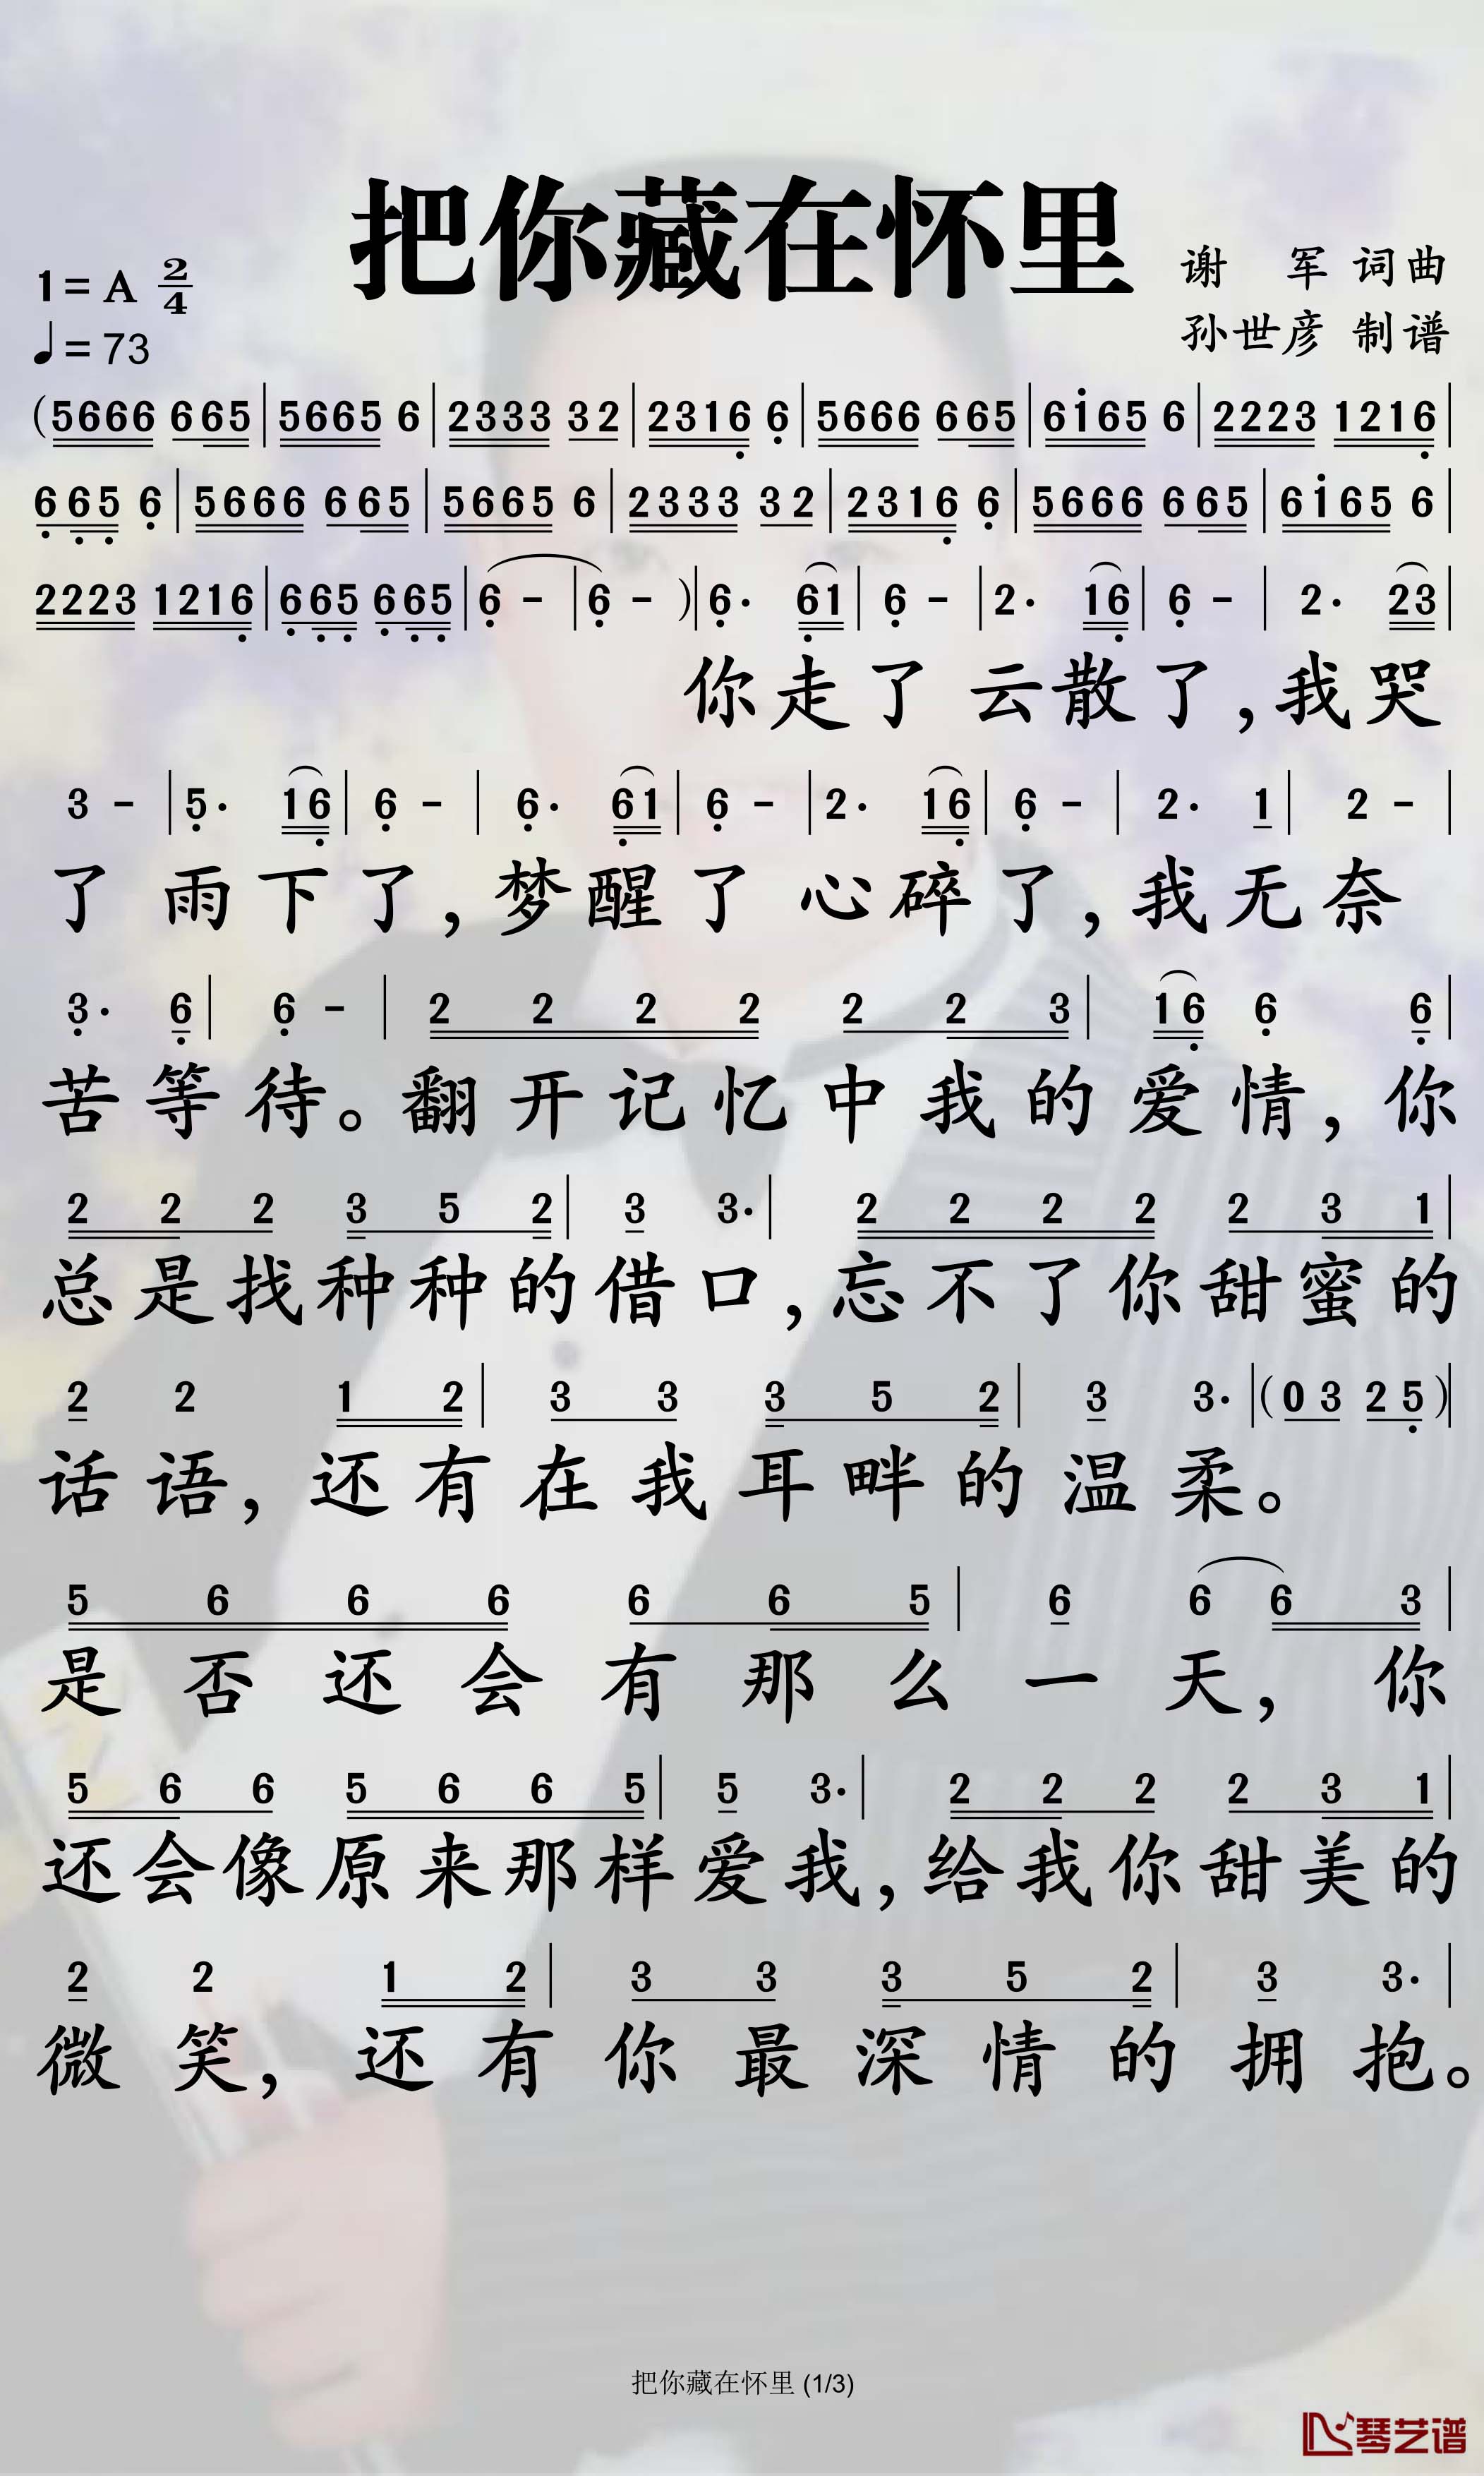 把你藏在怀里
1=A 2/4
♩=73
谢 军 词曲
孙世彦 制谱
(5666 665|5665 6|2333 32|2316 6|5666 665|6i65 6|2223 1216|
665 6|5666 665|5665 6|2333 32|2316 6|5666 665|6i65 6|
2223 1216|665 665|6 -|6 - )|6. 61|6 -|2. 16|6 -|2. 23|
你走了 云散了,我哭
3 -|5. 16|6 -|6. 61|6 -|2. 16|6 -|2. 1|2 -|
了 雨下了,梦醒了 心碎了,我无奈
3. 6|6 -|2 2 2 2 2 2 3|16 6 6|
苦等待。翻开记忆中我的爱情,你
2 2 2 3 5 2|3 3.|2 2 2 2 2 3 1|
总是找种种的借口,忘不了你甜蜜的
2 2 1 2|3 3 3 5 2|3 3.|(0 3 2 5)|
话语,还有在我耳畔的温柔。
5 6 6 6 6 6 5|6 6 6 3|
是否还会有那么一天,你
5 6 6 5 6 6 5|5 3.|2 2 2 2 3 1|
还会像原来那样爱我,给我你甜美的
2 2 1 2|3 3 3 5 2|3 3.|
微笑,还有你最深情的拥抱。
把你藏在怀里 (1/3)
琴艺谱